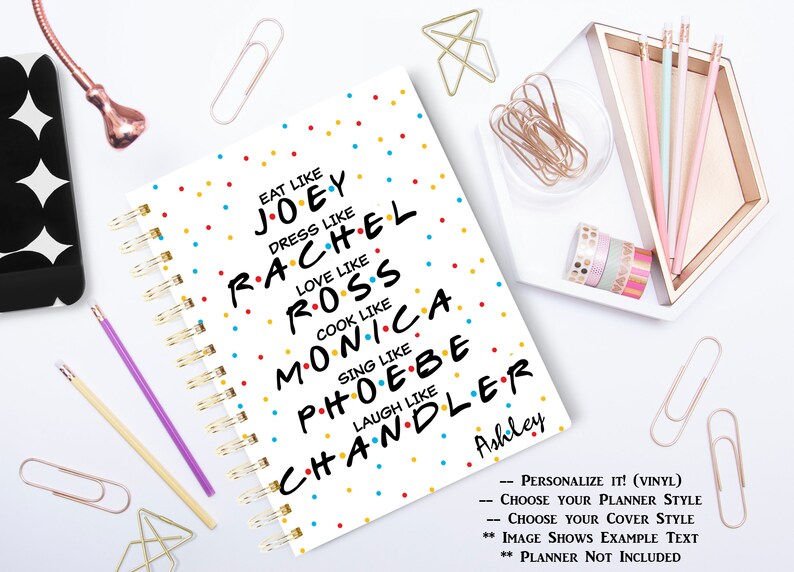 EAT LIKE
J•O•E•Y
DRESS LIKE
R•A•C•H•E•L
LOVE LIKE
R•O•S•S
COOK LIKE
M•O•N•I•C•A
SING LIKE
P•H•O•E•B•E
LAUGH LIKE
C•H•A•N•D•L•E•R
Ashley
-- Personalize it! (vinyl)
-- Choose your Planner Style
-- Choose your Cover Style
** Image Shows Example Text
** Planner Not Included